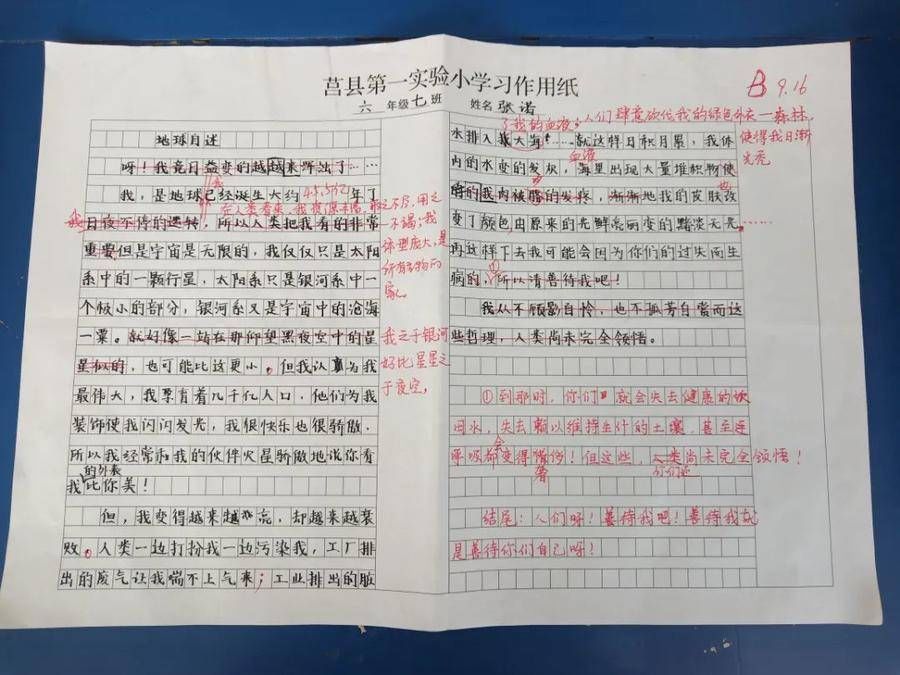 莒县第一实验小学习作用纸
六 年级 七 班 姓名 张诺
B 9.16
地球自述
呀！我竟日益变的越越来
我，是地球已经诞生大约45.5亿年了
在人类看来，我资源丰富，取之不尽，用之不竭；我体型庞大，是所有
日夜不停的运转，所以人类把我看的非常
重要但是宇宙是无限的，我仅仅只是太阳
系中的一颗行星，太阳系只是银河系中一
个极小的部分，银河系又是宇宙中的沧海
一粟。就好像一站在那仰望黑夜空中的星
星似的，也可能比这更小。但我认为我
我之于银河好比星星之于夜空，
最伟大，我养育着几千亿人口，他们为我
装饰使我闪闪发光，我很快乐也很骄傲.
所以我经常和我的伙伴火星骄傲地说你看
我的外表比你美！
但，我变得越来越亮，却越来越衰
败。人类一边打扮我一边污染我，工厂排
出的废气让我喘不上气来；工业排出的脏
了我的血液；人们肆意砍伐我的绿色外衣—森林，使得我日渐光秃
水排入我大海！……就这样日积月累，我体
内的水变的发灰，海里出现大量堆积物使
血液
的我肉被腾的发疼，渐渐地我的皮肤改
变了颜色由原来的光鲜亮丽变的黯淡无光……
再这样下去我可能会因为你们的过失而生
病的，①所以请善待我吧！
我从不顾影自怜，也不孤芳自赏而这
些哲理，人类尚未完全领悟。
①到那时，你们就会失去健康的饮
用水，失去赖以维持生计的土壤，甚至连
呼吸都会变得奢侈！但这些，人类尚未完全领悟！
你们还
结尾：人们呀！善待我吧！善待我就
是善待你们自己呀！